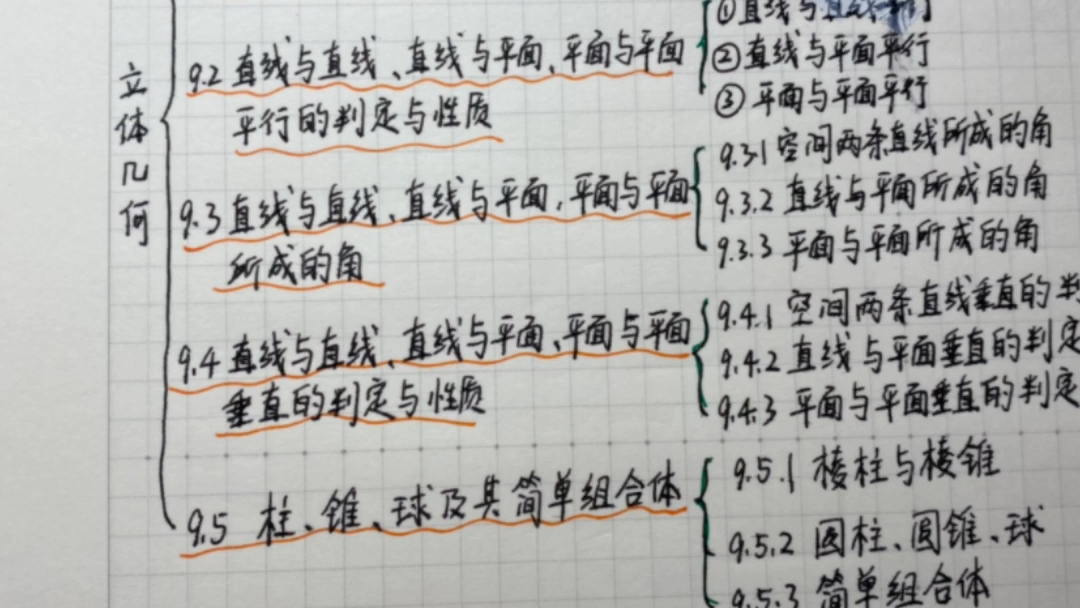 立体几何
9.2 直线与直线、直线与平面、平面与平面
平行的判定与性质
①直线与
②直线与平面平行
③平面与平面平行
9.3 直线与直线、直线与平面、平面与平面
所成的角
9.3.1 空间两条直线所成的角
9.3.2 直线与平面所成的角
9.3.3 平面与平面所成的角
9.4 直线与直线、直线与平面、平面与平面
垂直的判定与性质
9.4.1 空间两条直线垂直的判
9.4.2 直线与平面垂直的判定
9.4.3 平面与平面垂直的判定
9.5 柱、锥、球及其简单组合体
9.5.1 棱柱与棱锥
9.5.2 圆柱、圆锥、球
9.5.3 简单组合体